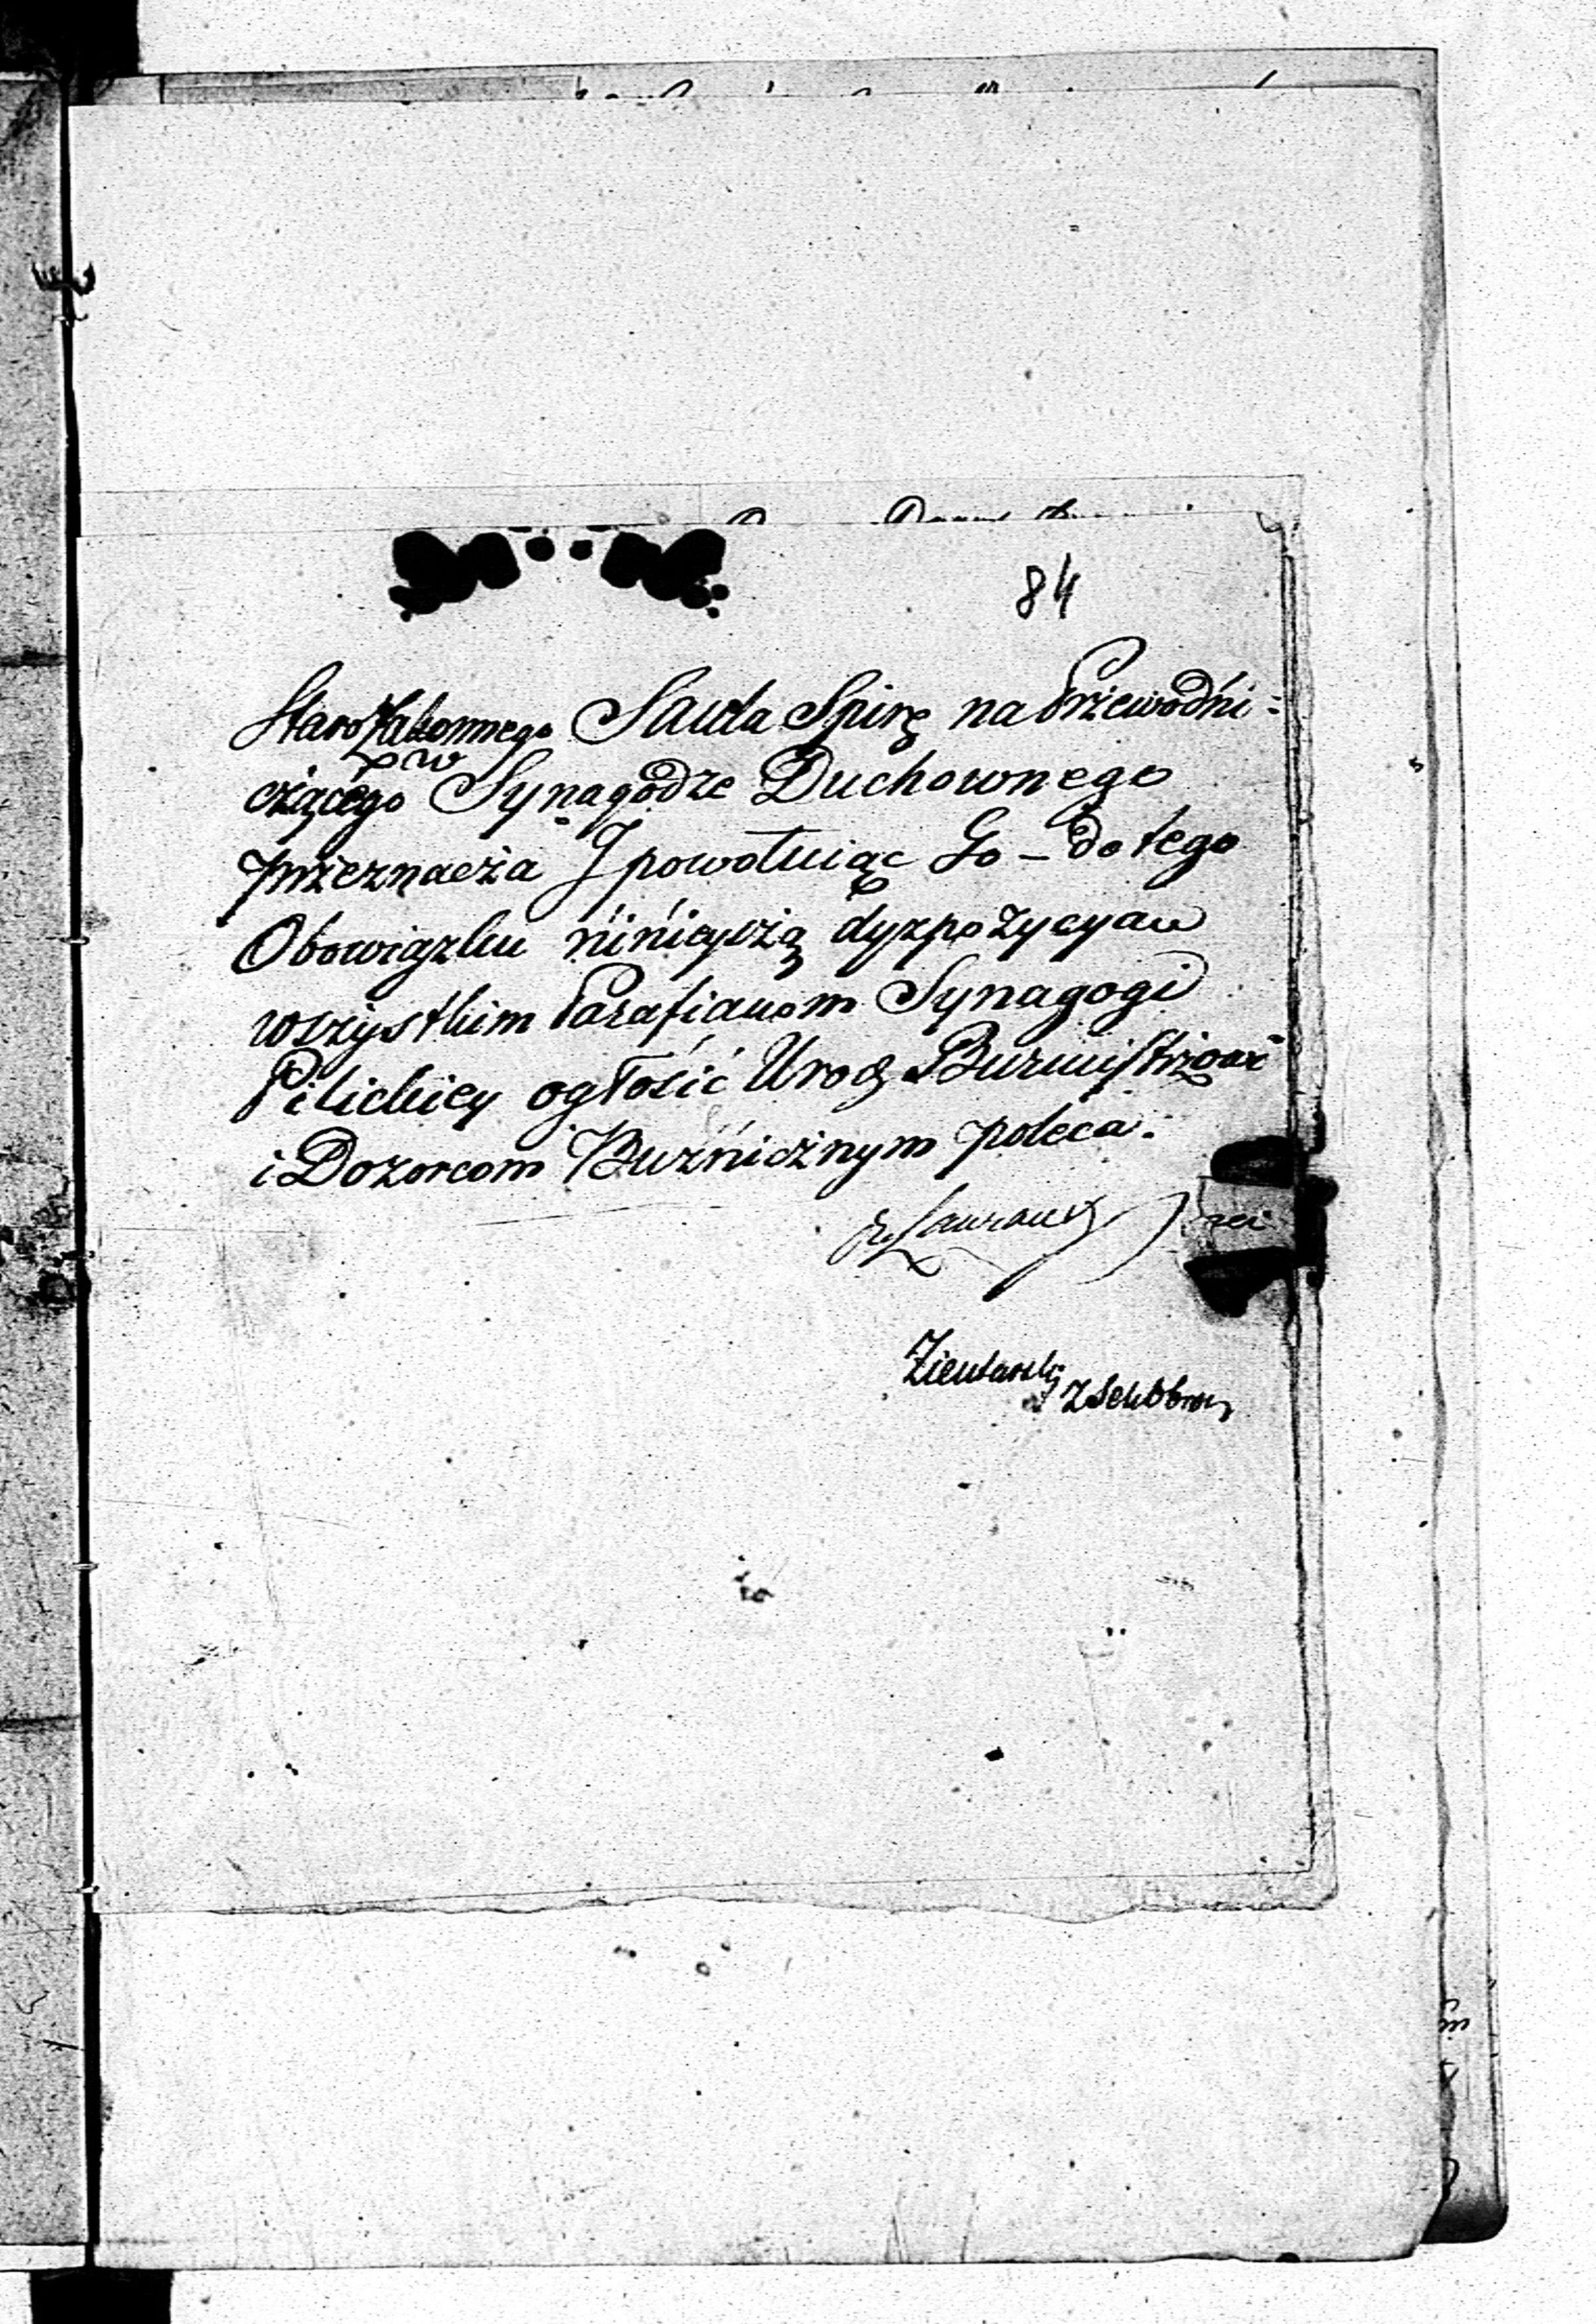 84
Starozakonnego Saula Spirę na Przewodni=
czącego w Synagodze Duchownego
przeznacza I powołuiąc Go – do tego
Obowiązku ninieyszą dyzpozycyau
wszystkim Parafianom Synagogi
Pilickiey ogłosić Urod Burmistrzowi
i Dozorcom Buźnicznym poleca.
Zientarski